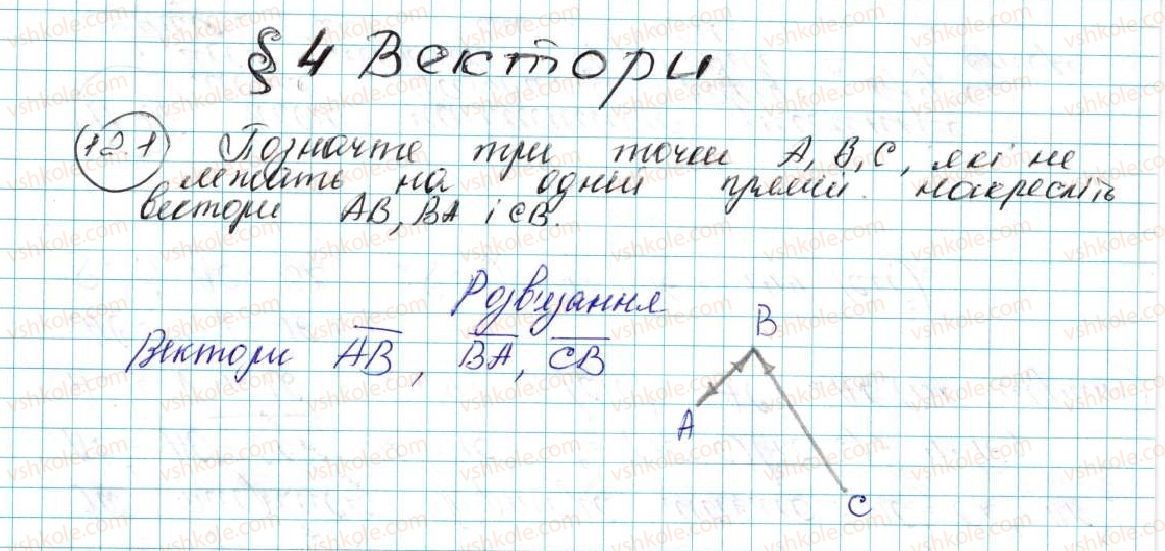 § 4 Вектори
12.1 Позначте три точки А, В, С, які не
лежать на одній прямій. накресліть
вектори АВ, ВА і СВ.
Розв'язання
Вектори АВ, ВА, СВ
В
А
С
vshkole.com